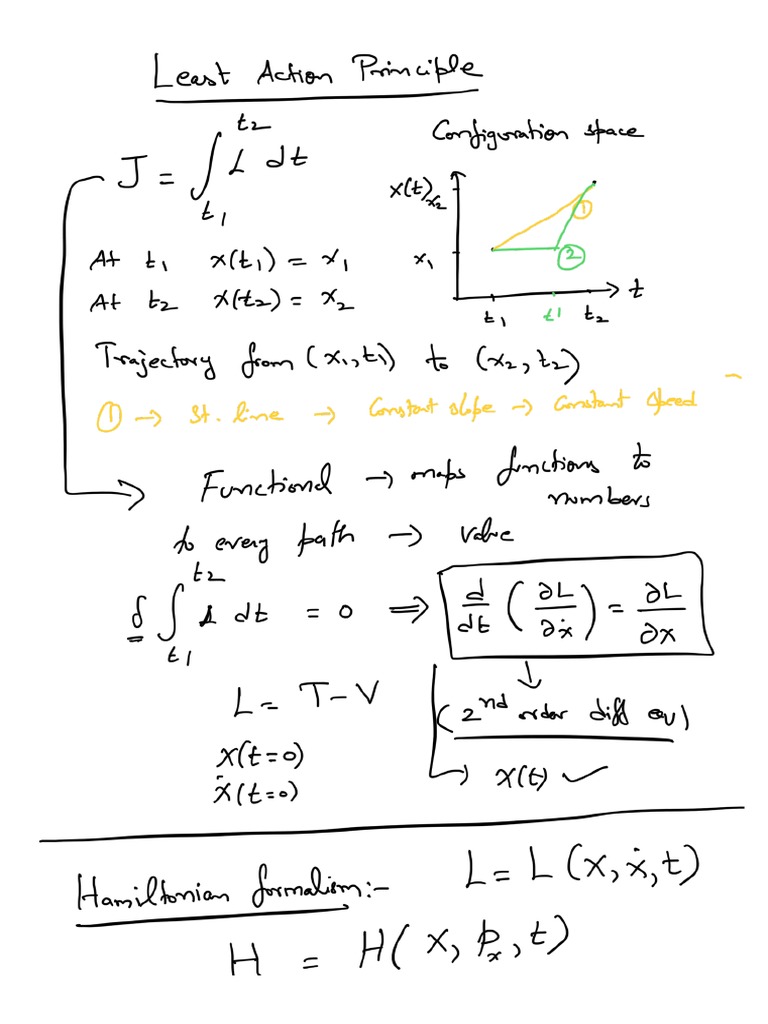 Least Action Principle
J = ∫_{t1}^{t2} L dt
Configuration space
x(t)
x2
x1
①
②
t
t1
t'
t2
At t1 x(t1) = x1
At t2 x(t2) = x2
Trajectory from (x1,t1) to (x2,t2)
① → St. line → Constant slope → Constant speed
Functional → maps functions to
numbers
to every path → value
δ ∫_{t1}^{t2} L dt = 0 ⇒ d/dt (∂L/∂ẋ) = ∂L/∂x
L = T-V
(2nd order diff eq)
x(t=0)
ẋ(t=0)
→ x(t) ✓
Hamiltonian formalism:-
L = L (x, ẋ, t)
H = H( x, p_x, t)